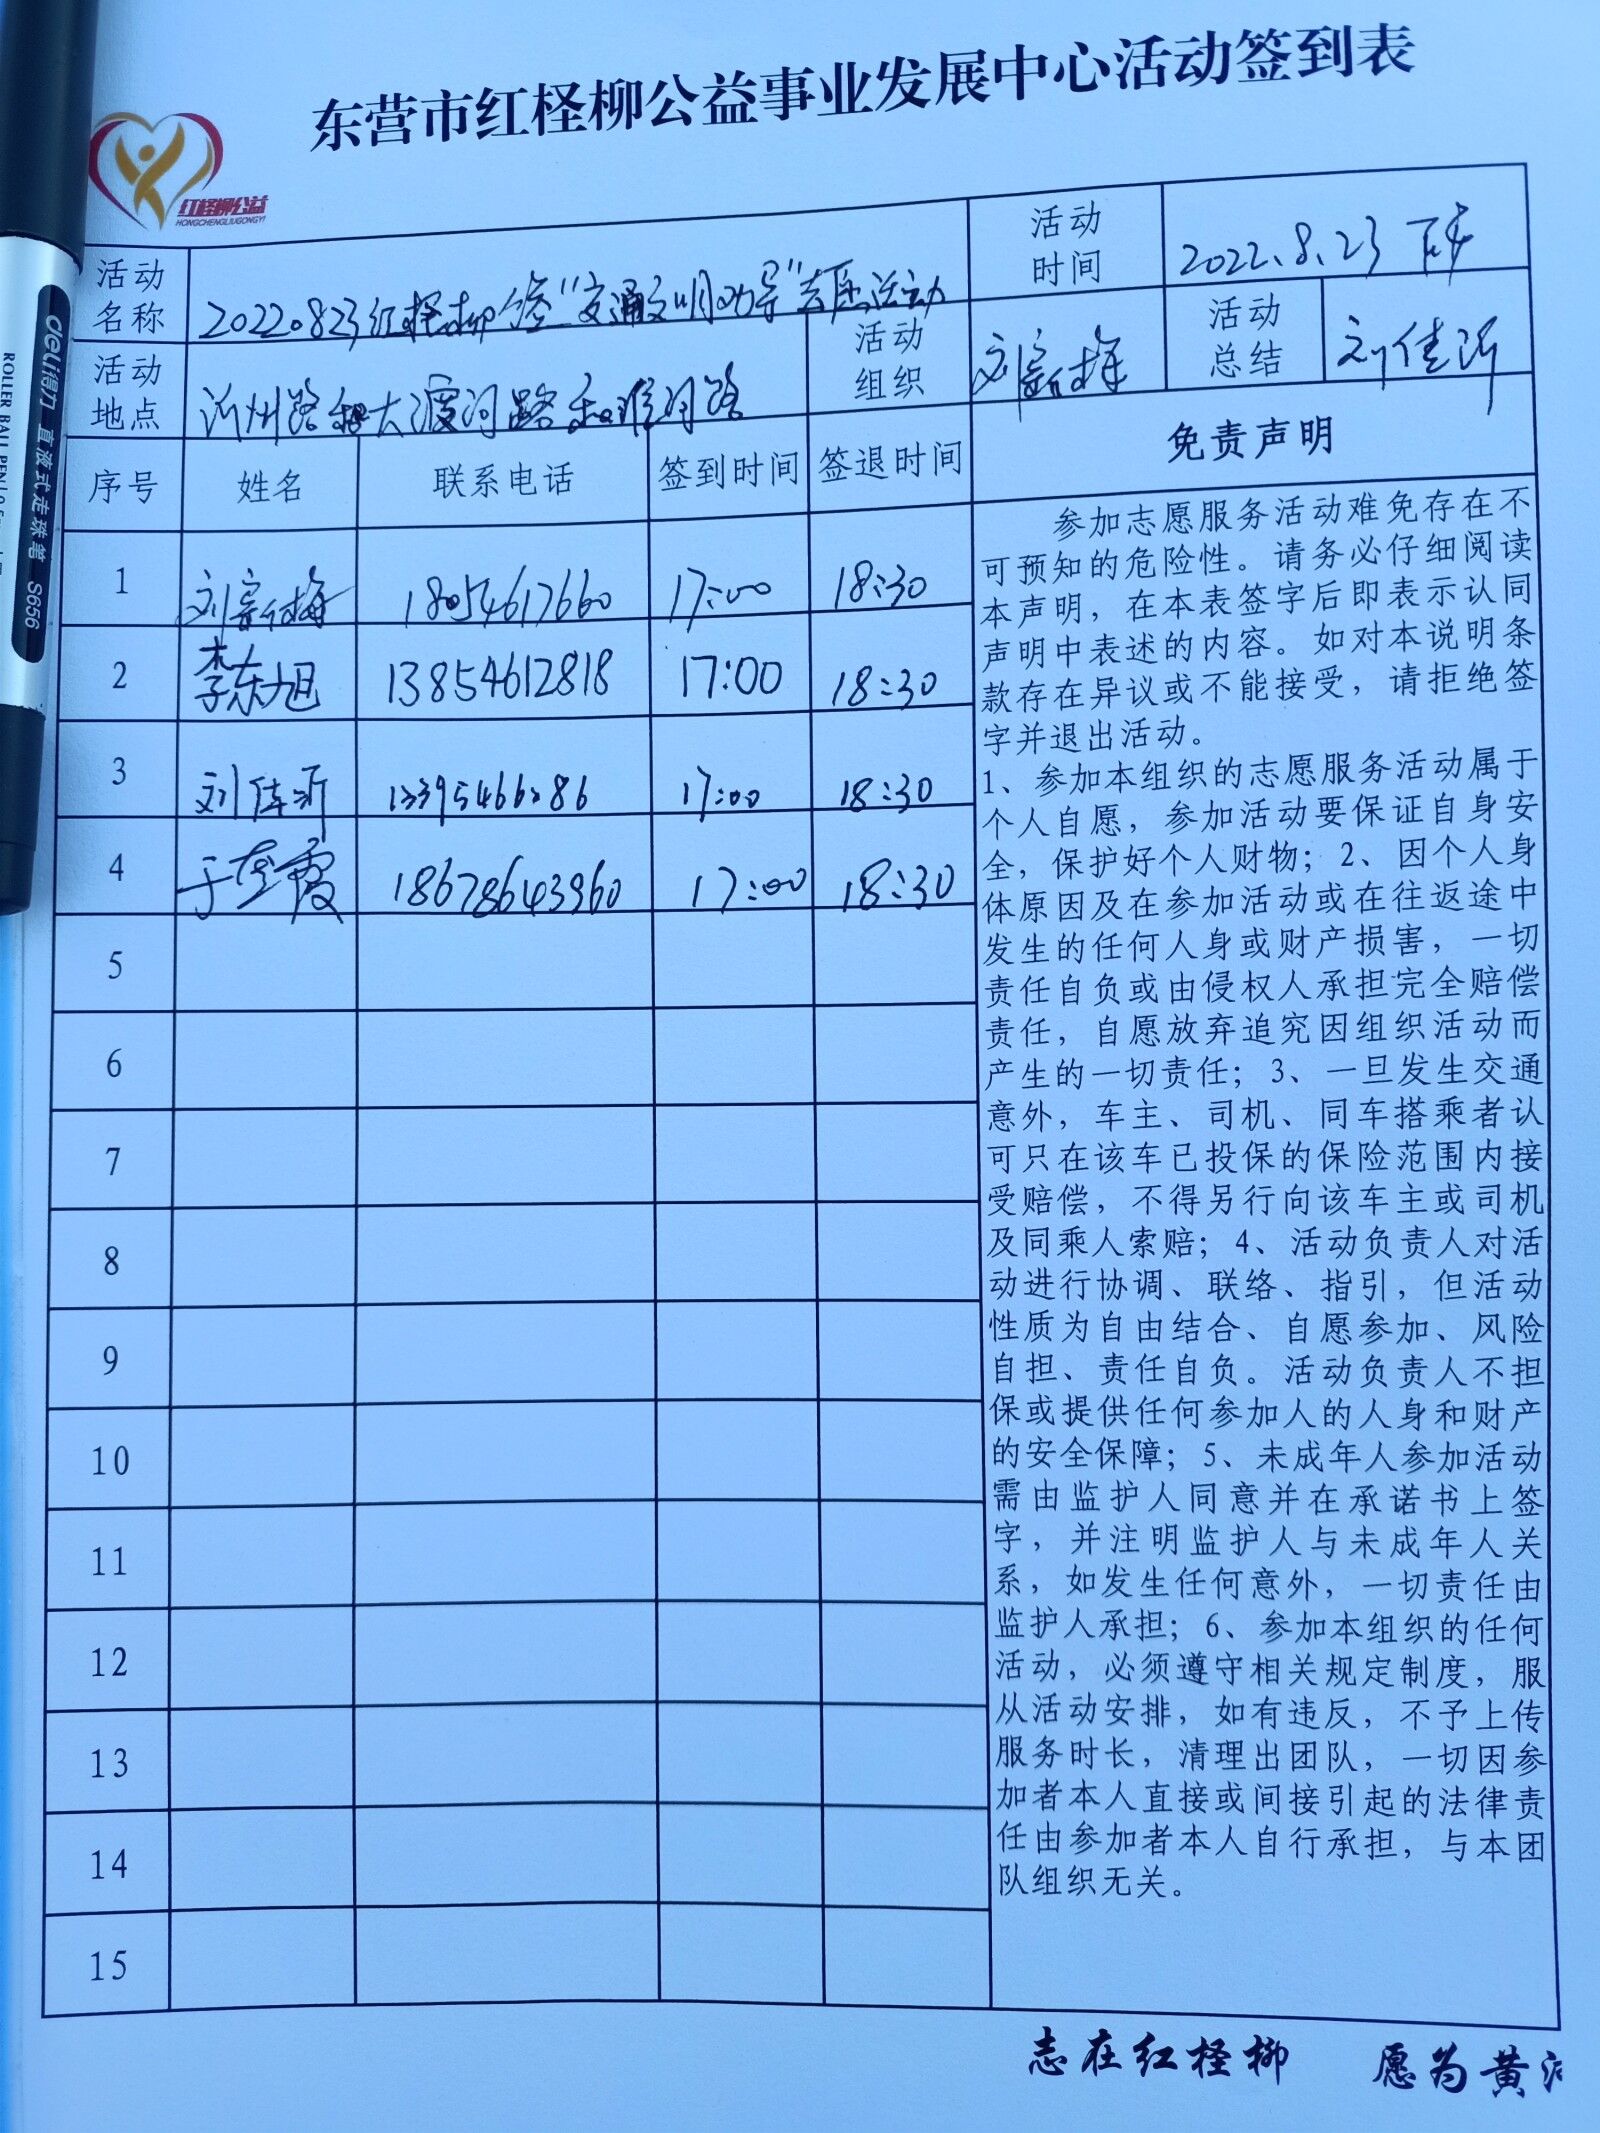 东营市红柽柳公益事业发展中心活动签到表
红柽柳公益
HONGCHENGLIUGONGYI
活动名称
20220823红柽柳 "交通文明劝导"志愿活动
活动时间
2022.8.23 下午
活动地点
沂州路和大渡河路和淮河路
活动组织
刘
活动总结
刘佳沂
序号 姓名 联系电话 签到时间 签退时间 免责声明
1 刘 18054617660 17:00 18:30
2 李东旭 13854612818 17:00 18:30
3 刘佳沂 13395466286 17:00 18:30
4 于 霞 18678643960 17:00 18:30
5
6
7
8
9
10
11
12
13
14
15
参加志愿服务活动难免存在不
可预知的危险性。请务必仔细阅读
本声明，在本表签字后即表示认同
声明中表述的内容。如对本说明条
款存在异议或不能接受，请拒绝签
字并退出活动。
1、参加本组织的志愿服务活动属于
个人自愿，参加活动要保证自身安
全，保护好个人财物；2、因个人身
体原因及在参加活动或在往返途中
发生的任何人身或财产损害，一切
责任自负或由侵权人承担完全赔偿
责任，自愿放弃追究因组织活动而
产生的一切责任；3、一旦发生交通
意外，车主、司机、同车搭乘者认
可只在该车已投保的保险范围内接
受赔偿，不得另行向该车主或司机
及同乘人索赔；4、活动负责人对活
动进行协调、联络、指引，但活动
性质为自由结合、自愿参加、风险
自担、责任自负。活动负责人不担
保或提供任何参加人的人身和财产
的安全保障；5、未成年人参加活动
需由监护人同意并在承诺书上签
字，并注明监护人与未成年人关
系，如发生任何意外，一切责任由
监护人承担；6、参加本组织的任何
活动，必须遵守相关规定制度，服
从活动安排，如有违反，不予上传
服务时长，清理出团队，一切因参
加者本人直接或间接引起的法律责
任由参加者本人自行承担，与本团
队组织无关。
志在红柽柳 愿为黄
deli得力 直液式走珠笔 S656
ROLLER BALL PEN